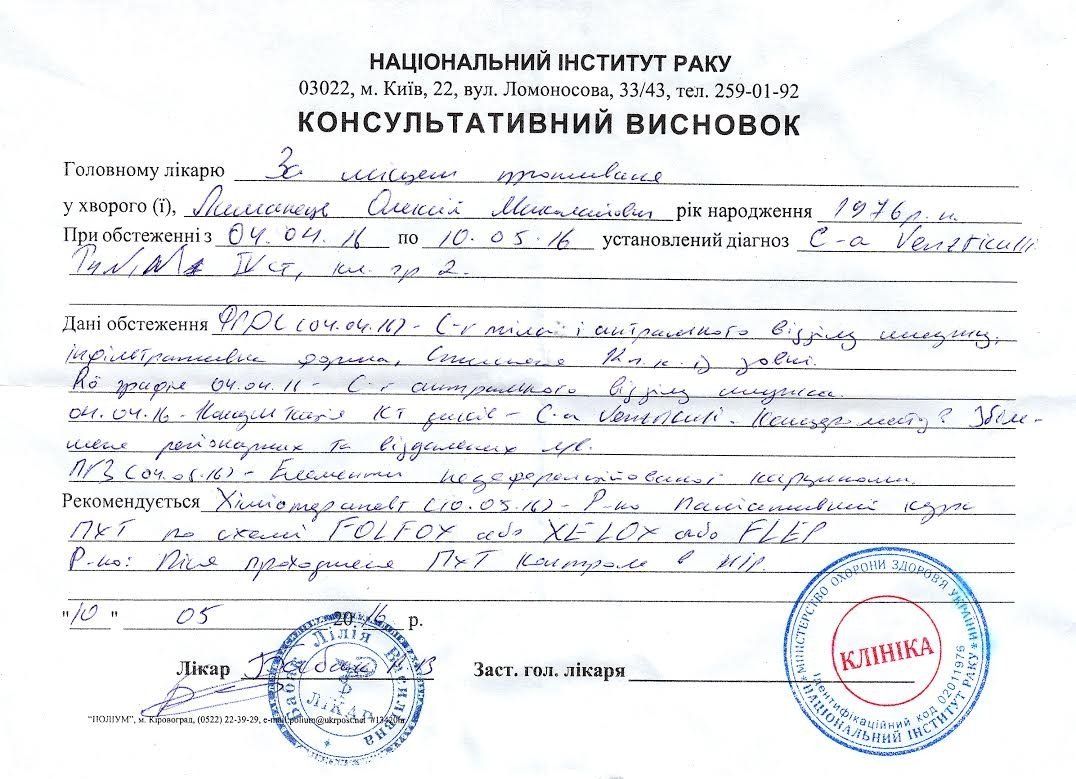 НАЦІОНАЛЬНИЙ ІНСТИТУТ РАКУ
03022, м. Київ, 22, вул. Ломоносова, 33/43, тел. 259-01-92
КОНСУЛЬТАТИВНИЙ ВИСНОВОК
Головному лікарю За місцем проживання
у хворого (ї), Олексій Миколайович рік народження 1976 р. н.
При обстеженні з 04.04.16 по 10.05.16 установлений діагноз C-a Ventriculi
IV ст, кл. гр 2.
Дані обстеження ФГДС (04.04.16) - C-r тіла і антрального відділу шлунку,
інфільтративна форма, із зовні.
графія 04.04.16 - C-r антрального відділу шлунка.
04.04.16 - Консультація КТ дисків - C-a Ventriculi. Збіль-
шене регіонарних та віддалених
ПГЗ (04.05.16) - Елементи недеференційованої карциноми.
Рекомендується Хіміотерапевт (10.05.16) - Р-но паліативний курс
ПХТ по схемі FOLFOX або XELOX або FLEP
Р-но: Після проходження ПХТ контроль в НІР.
"10" 05 2016 р.
Лікар Бабіна Л В Заст. гол. лікаря
"ПОЛІУМ", м. Кіровоград, (0522) 22-39-29, e-mail:polium@ukrpost.net
Бабіна Лілія Василівна
ЛІКАР
МІНІСТЕРСТВО ОХОРОНИ ЗДОРОВ'Я УКРАЇНИ
НАЦІОНАЛЬНИЙ ІНСТИТУТ РАКУ
Ідентифікаційний код 02011976
КЛІНІКА